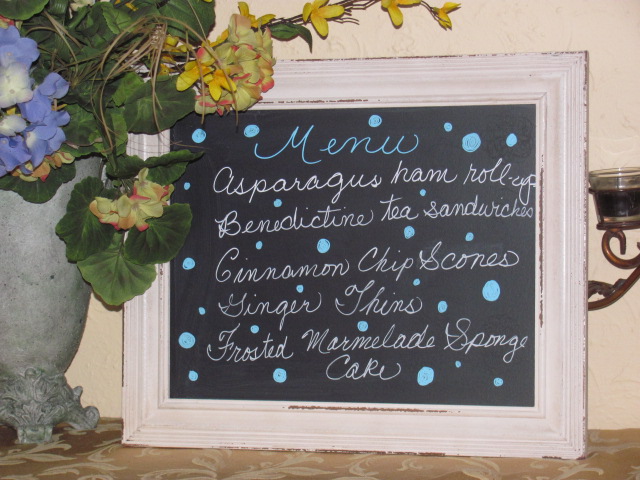 Menu
Asparagus ham roll-up
Benedictine tea sandwiches
Cinnamon Chip Scones
Ginger Thins
Frosted Marmelade Sponge
Cake